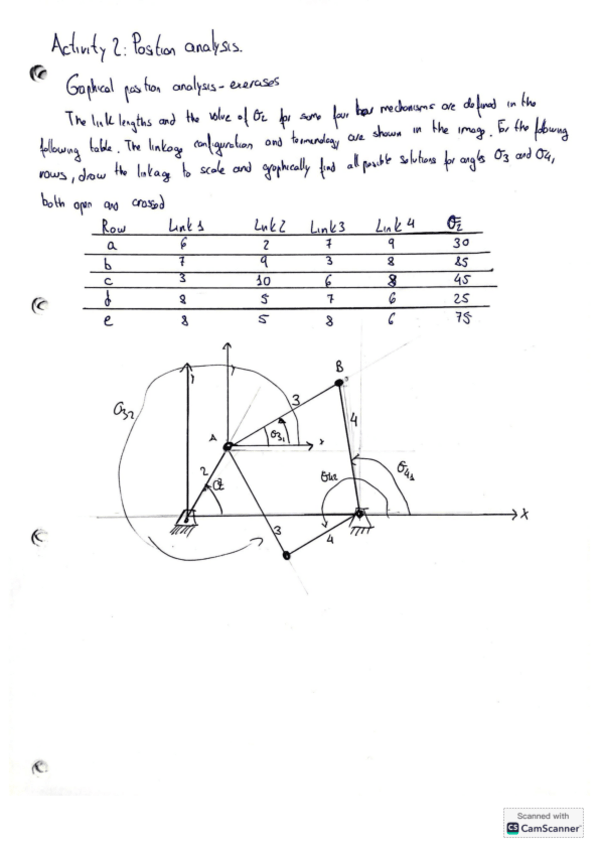 Activity 2: Position analysis.
Gaphical position analysis - exercises
The link lengths and the value of θ2 for some four bar mechanisms are defined in the
following table. The linkage configuration and terminology are shown in the image. For the following
rows, draw the linkage to scale and graphically find all possible solutions for angles θ3 and θ4,
both open and crossed
Row Link 1 Link 2 Link 3 Link 4 θ2
a 6 2 7 9 30
b 7 9 3 8 85
c 3 10 6 8 45
d 8 5 7 6 25
e 8 5 8 6 75
B
θ32
3
A
θ31
x
4
2
θ2
θ42
θ41
X
3
4
Scanned with
CS CamScanner